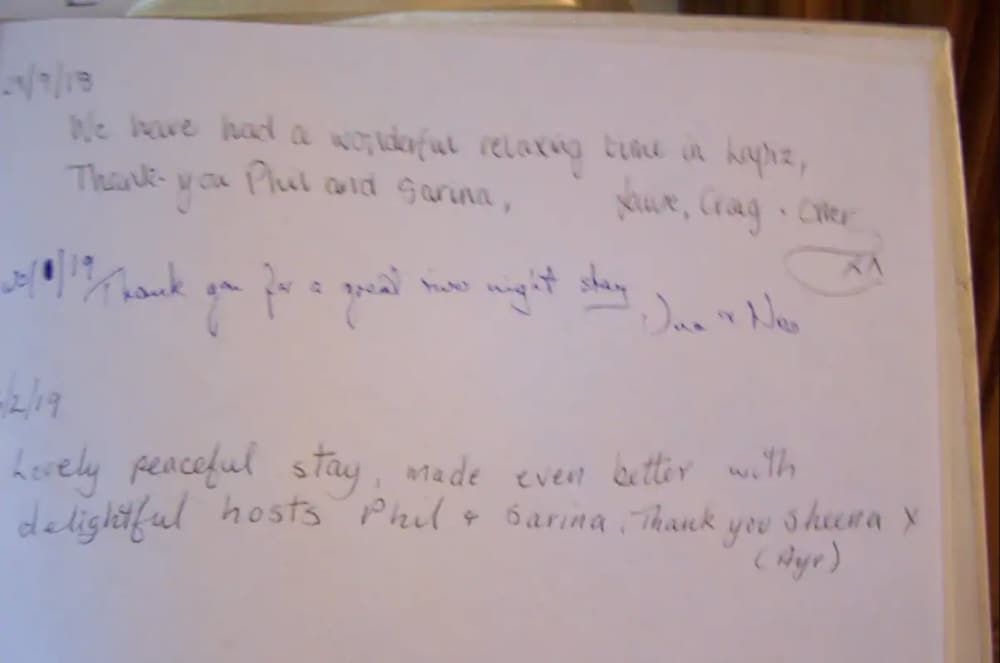 /9/18
We have had a wonderful relaxing time in
Thank-you Phil and Sarina,
Craig
/19 Thank you for a great two night stay
/2/19
Lovely peaceful stay, made even better with
delightful hosts Phil & Sarina. Thank you Sheena x
(Ayr)